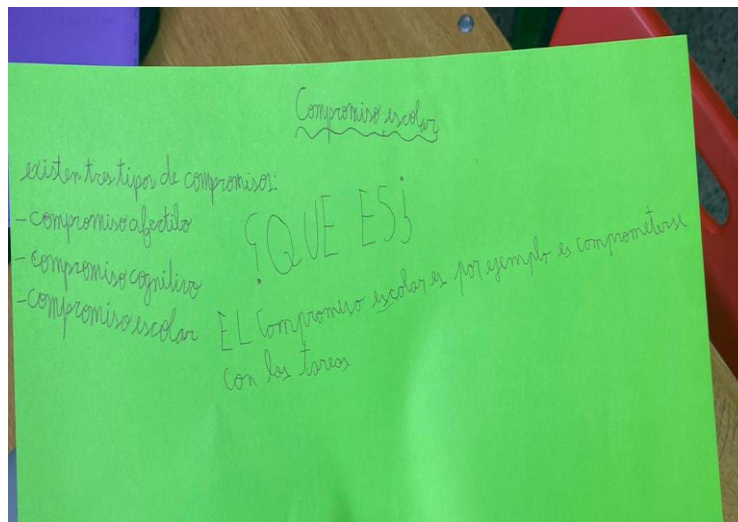 Compromiso escolar
existen tres tipos de compromisos:
- compromiso afectivo
- compromiso cognitivo
- compromiso escolar
¿QUE ES?
EL Compromiso escolar es por ejemplo es comprometerse
con las tareas